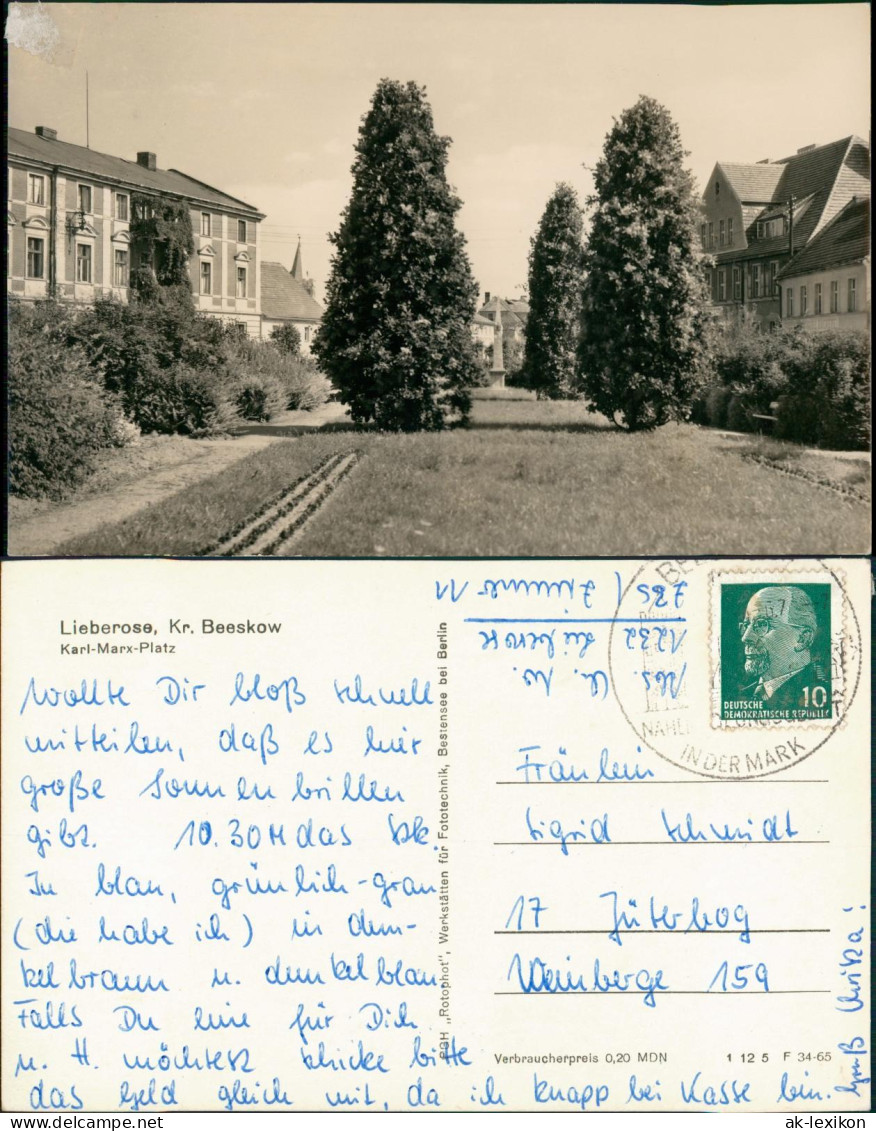 Lieberose, Kr. Beeskow
Karl-Marx-Platz
Wollte Dir bloß schnell
mitteilen, daß es hier
große Sonnenbrillen
gibt. 10.30 M das Stk.
In blau, grünlich-grau
(die habe ich) in dun-
kelbraun u. dunkelblau.
Falls Du eine für Dich
u. H. möchtest schicke bitte
das Geld gleich mit, da ich knapp bei Kasse bin.
Gruß Ulrika!
PGH „Rotophot", Werkstätten für Fototechnik, Bestensee bei Berlin
Abs. U. W.
1232 Lieberose
ZBS / Zimmer 11
BEE
NAHER
IN DER MARK
DEUTSCHE
DEMOKRATISCHE REPUBLIK
10
Fräulein
Sigrid Schmidt
17 Jüterbog
Weinberge 159
Verbraucherpreis 0,20 MDN 1 12 5 F 34-65
ak-lexikon